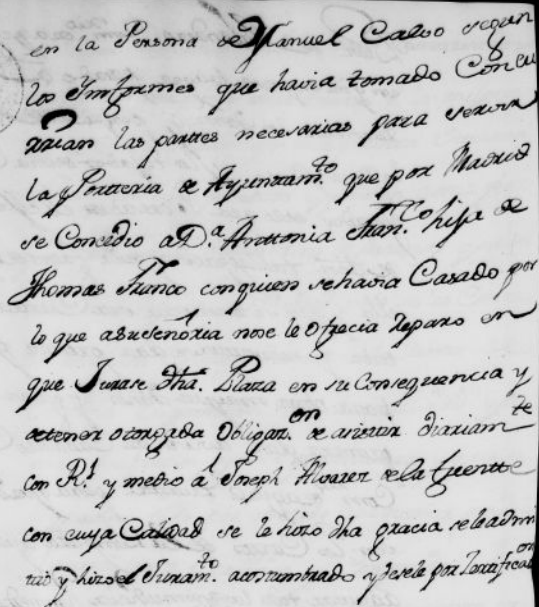 en la Persona de Manuel Calvo segun
los Imformes que havia tomado Concu
rrian las partes necesarias para servir
la Portteria de Ayuntam.to que por Madrid
se Concedio a D.a Anttonia Fran.co hija de
Thomas Franco con quien se havia Casado por
lo que a su senoria no se le ofrecia reparo en
que Jurase dha. Plaza en su Consequencia y
de tener otorgada Obligaz.on de asistir diariam.te
con R.l y medio a Joseph Alvarez de la fuentte
con cuya Calidad se le hizo dha gracia se le admi
tio y hizo el Juram.to acostumbrado y desele por Zertificaz.on